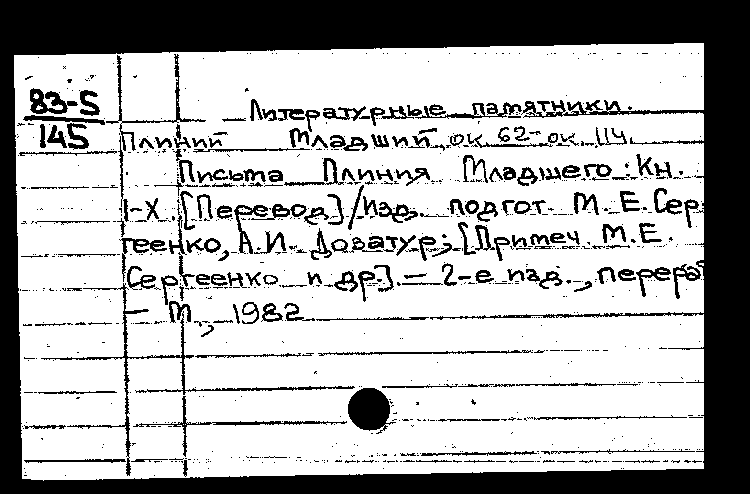 83-5
145
Литературные памятники.
Плиний Младший, ок. 62-ок. 114.
Письма Плиния Младшего: Кн.
I-X. [Перевод]/Изд. подгот. М.Е. Сер-
геенко, А.И. Доватур; [Примеч. М.Е.
Сергеенко и др.]. — 2-е изд., перераб
— М., 1982